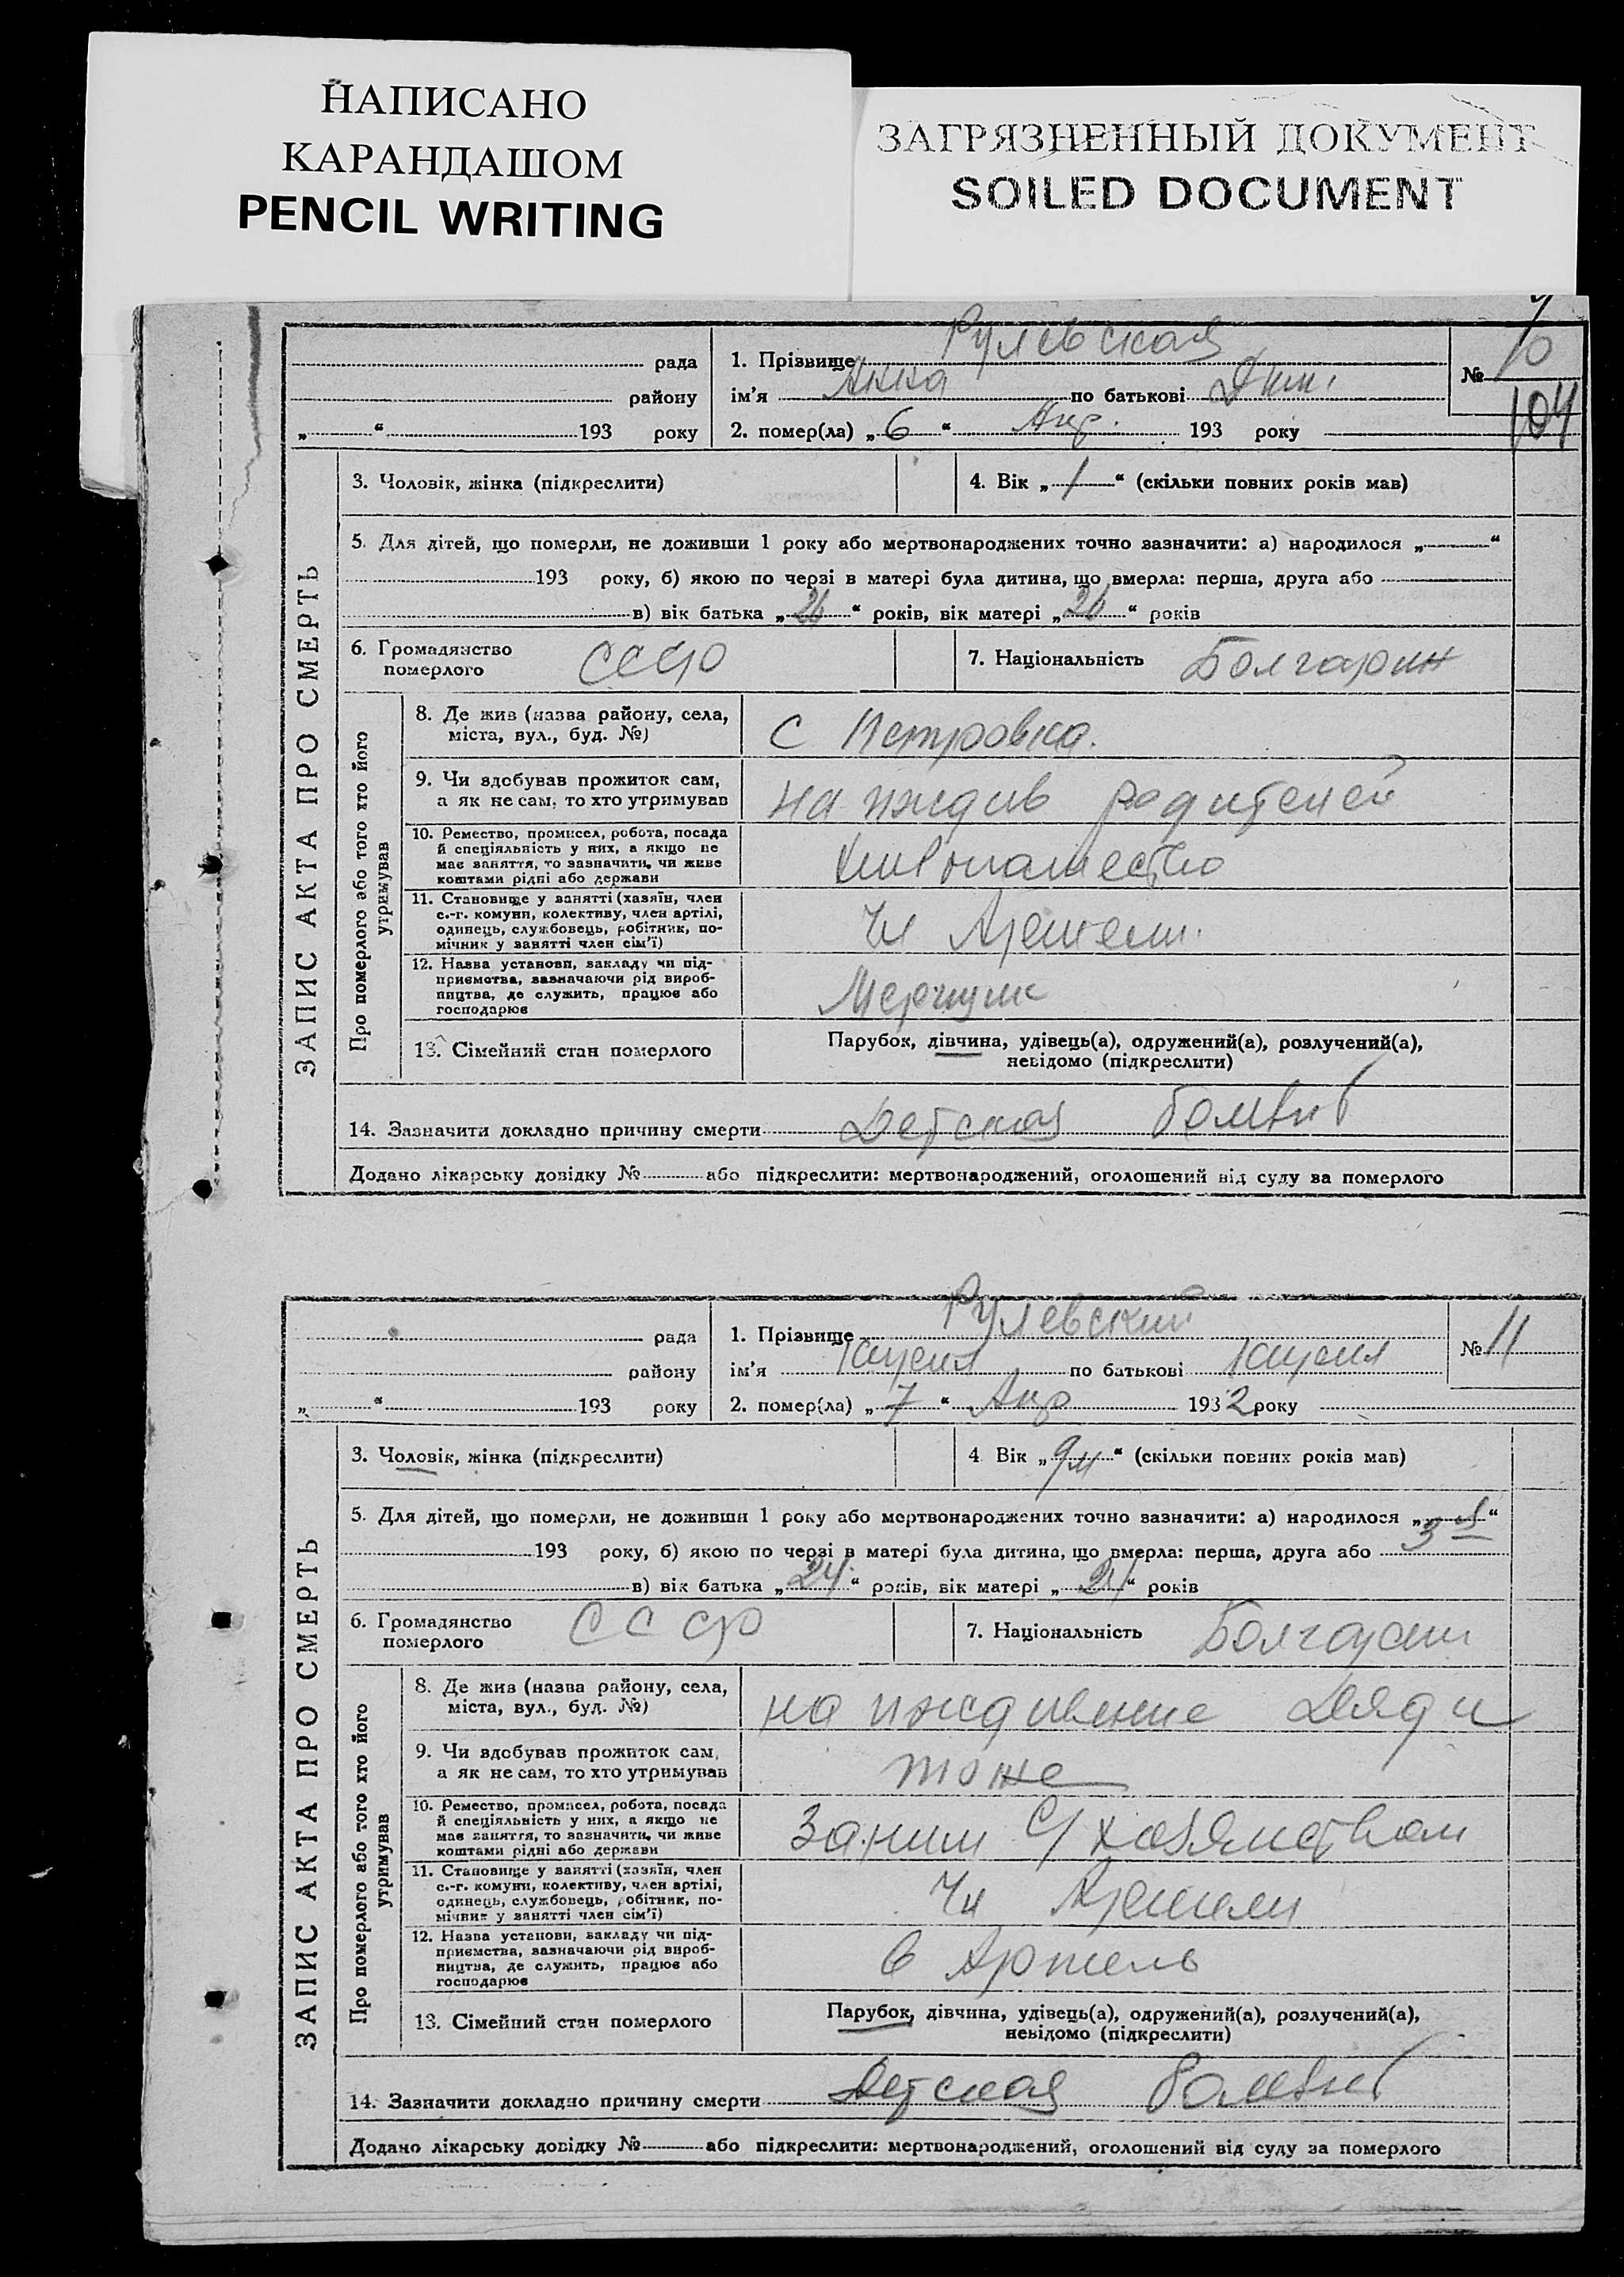 НАПИСАНО
КАРАНДАШОМ
PENCIL WRITING
ЗАГРЯЗНЕННЫЙ ДОКУМЕНТ
SOILED DOCUMENT
ЗАПИС АКТА ПРО СМЕРТЬ
рада
району
„ “ 193 року
1. Прізвище Рулевская
ім’я Анна по батькові Дим.
2. помер(ла) „ 6 “ Апр. 193 року
№ 10
104
3. Чоловік, жінка (підкреслити)
4. Вік „ 1 “ (скільки повних років мав)
5. Для дітей, що померли, не доживши 1 року або мертвонароджених точно зазначити: а) народилося „ “
193 року, б) якою по черзі в матері була дитина, що вмерла: перша, друга або
в) вік батька „ 26 “ років, вік матері „ 26 “ років
6. Громадянство
померлого
СССР
7. Національність Болгарин
Про померлого або того хто його
утримував
8. Де жив (назва району, села,
міста, вул., буд. №)
с Петровка.
9. Чи здобував прожиток сам,
а як не сам, то хто утримував
на иждив родителей
10. Ремество, промисел, робота, посада
й спеціяльність у них, а якщо не
має заняття, то зазначити, чи живе
коштами рідні або держави
11. Становище у занятті (хазяїн, член
с.-г. комуни, колективу, член артілі,
одинець, службовець, робітник, по-
мічник у занятті член сім’ї)
Чл Артели.
12. Назва установи, закладу чи під-
приємства, зазначаючи рід вироб-
ництва, де служить, працює або
господарює
13. Сімейний стан померлого
Парубок, дівчина, удівець(а), одружений(а), розлучений(а),
невідомо (підкреслити)
14. Зазначити докладно причину смерти Детская
Додано лікарську довідку № або підкреслити: мертвонароджений, оголошений від суду за померлого
ЗАПИС АКТА ПРО СМЕРТЬ
рада
району
„ “ 193 року
1. Прізвище Рулевский
ім’я по батькові
2. помер(ла) „ 7 “ Апр 1932 року
№ 11
3. Чоловік, жінка (підкреслити)
4. Вік „ 9м “ (скільки повних років мав)
5. Для дітей, що померли, не доживши 1 року або мертвонароджених точно зазначити: а) народилося „ “
193 року, б) якою по черзі в матері була дитина, що вмерла: перша, друга або 3 я
в) вік батька „ 24 “ років, вік матері „ 21 “ років
6. Громадянство
померлого
СССР
7. Національність Болгарин
Про померлого або того хто його
утримував
8. Де жив (назва району, села,
міста, вул., буд. №)
на иждивение Дяди
9. Чи здобував прожиток сам,
а як не сам, то хто утримував
тоже
10. Ремество, промисел, робота, посада
й спеціяльність у них, а якщо не
має заняття, то зазначити, чи живе
коштами рідні або держави
Заним С/хозяйством
11. Становище у занятті (хазяїн, член
с.-г. комуни, колективу, член артілі,
одинець, службовець, робітник, по-
мічник у занятті член сім’ї)
Чл Артели
12. Назва установи, закладу чи під-
приємства, зазначаючи рід вироб-
ництва, де служить, працює або
господарює
в Артель
13. Сімейний стан померлого
Парубок, дівчина, удівець(а), одружений(а), розлучений(а),
невідомо (підкреслити)
14. Зазначити докладно причину смерти Детская
Додано лікарську довідку № або підкреслити: мертвонароджений, оголошений від суду за померлого